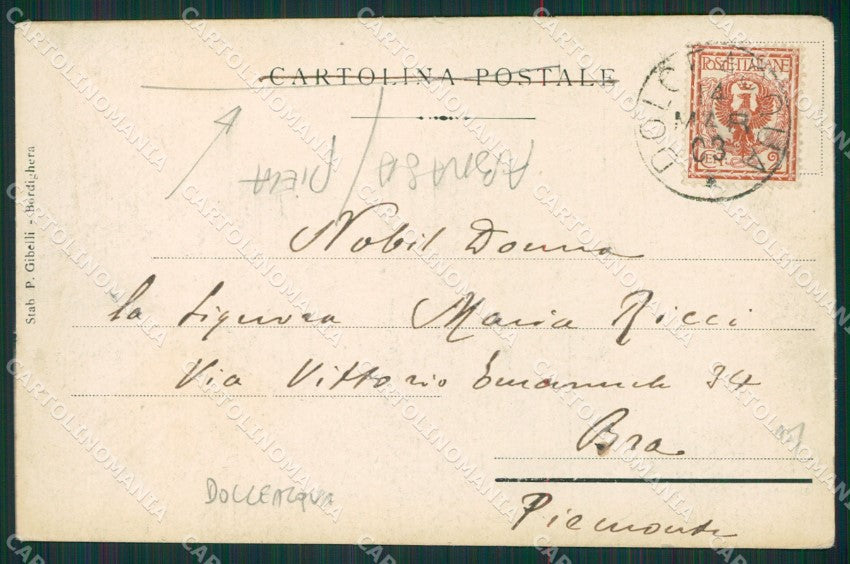 CARTOLINA POSTALE
POSTE ITALIANE
DOLCEACQUA
14
MAR
03
Stab. P. Gibelli - Bordighera
Nobil Donna
la Signora Maria Ricci
Via Vittorio Emanuele 34
Bra
Piemonte
DOLCEACQUA
CARTOLINOMANIA